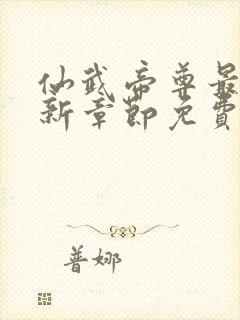 仙武帝尊最
新章節免費
普娜